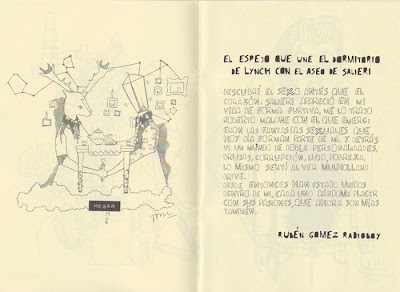 HOGAR
EL ESPEJO QUE UNE EL DORMITORIO
DE LYNCH CON EL ASEO DE SALIERI
DESCUBRÍ EL SEXO ANTES QUE EL
CORAZÓN. SALIERI APARECIÓ EN MI
VIDA DE FORMA FURTIVA, ME LO TRAJO
ROBERTO MALONE CON EL QUE EMERGI
ERON LAS FANTASÍAS SEXUALES QUE
HOY DÍA FORMAN PARTE DE MÍ, Y DETRÁS
VI UN MUNDO DE DOBLE PERSONALIDADES,
CORRUPCIÓN, LUJO, POBREZA,
LO MISMO SENTÍ AL VER MULHOLLAND
DRIVE.
DESDE ENTONCES HAN ESTADO UNIDOS
DENTRO DE MÍ, CADA UNO DÁNDOME PLACER
CON SUS PASIONES QUE AHORA SON MÍAS
TAMBIÉN.
RUBÉN GOMEZ RADIOBOY